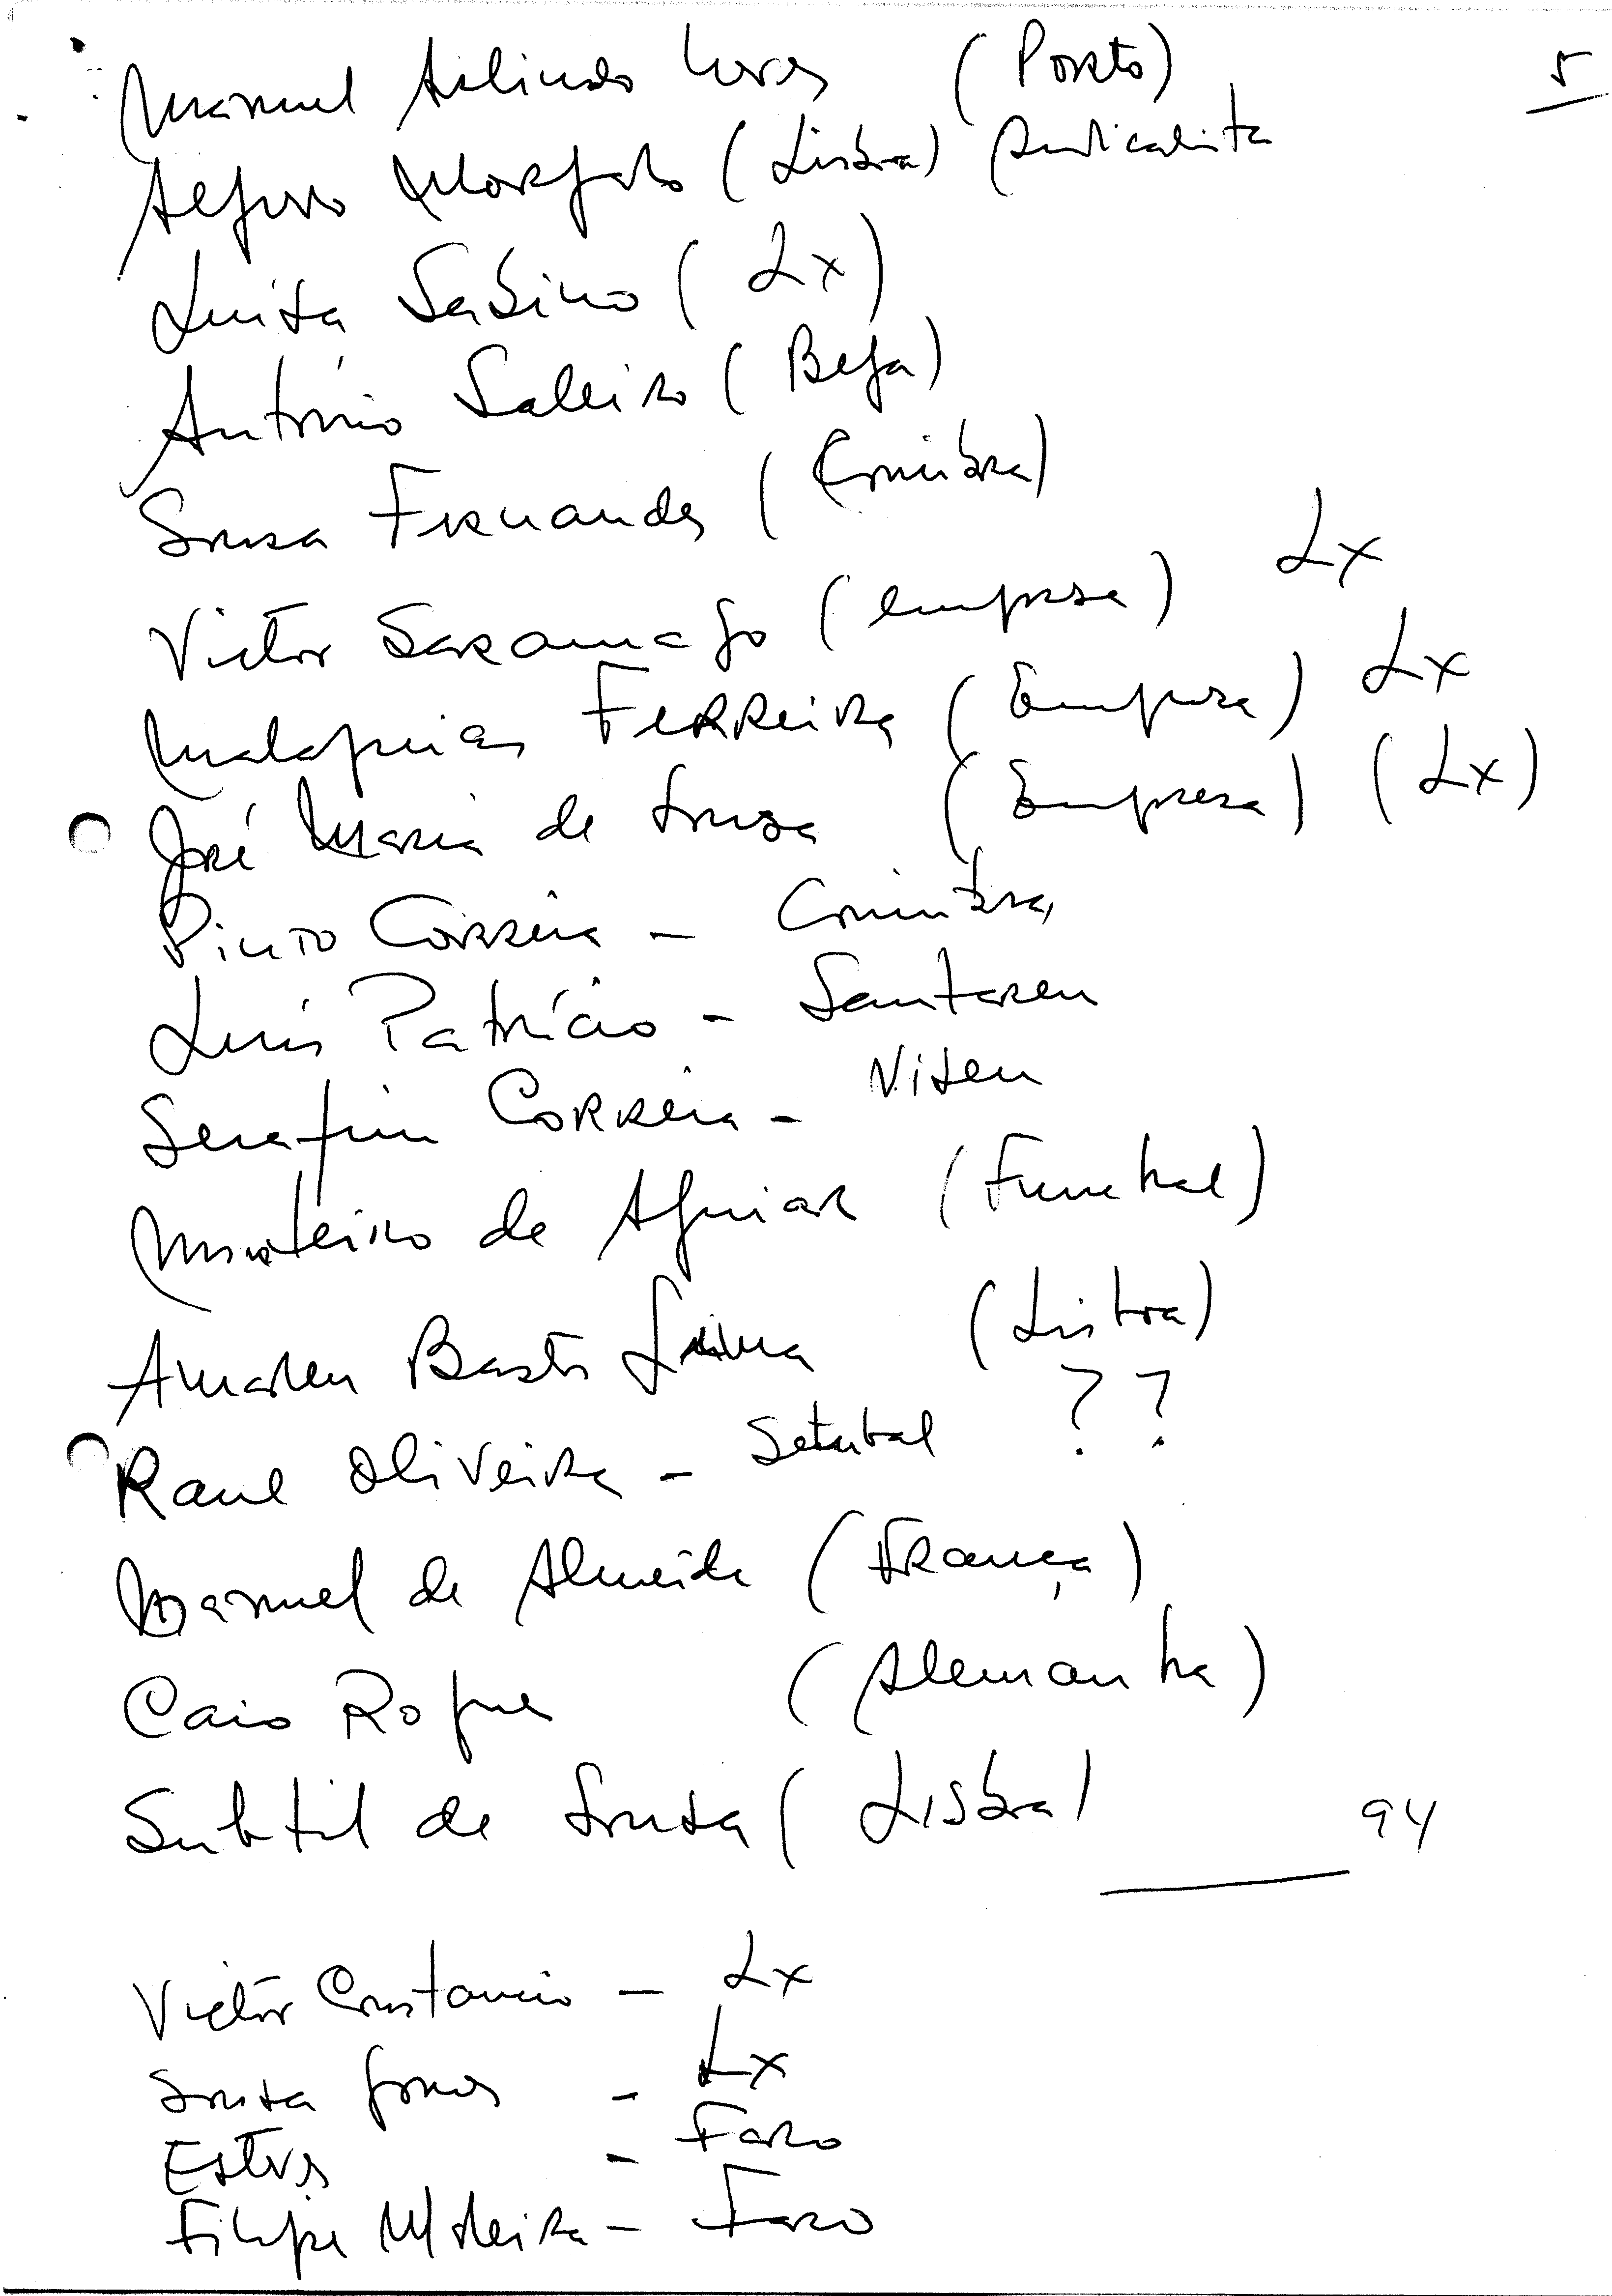 5
Manuel Arlindo (Porto)
Morgado (Lisboa) Sindicalista
Luísa Sabino (Lx)
António Saleiro (Beja)
Sousa Fernandes (Coimbra)
Victor Saramago (empresa) Lx
Malaquias Ferreira (Empresa) Lx
José Maria de Sousa (Empresa) (Lx)
Pinto Correia - Coimbra
Luís Patrício - Santarem
Serafim Correia - Viseu
Monteiro de Aguiar (Funchal)
Amadeu Basto Lima (Lisboa)
Raul Oliveira - Setubal ??
Manuel de Almeida (França)
Caio Roque (Alemanha)
Subtil de Sousa (Lisboa) 94
Victor Constancio - Lx
Sousa Gomes - Lx
Esteves - Faro
Filipe Madeira - Faro